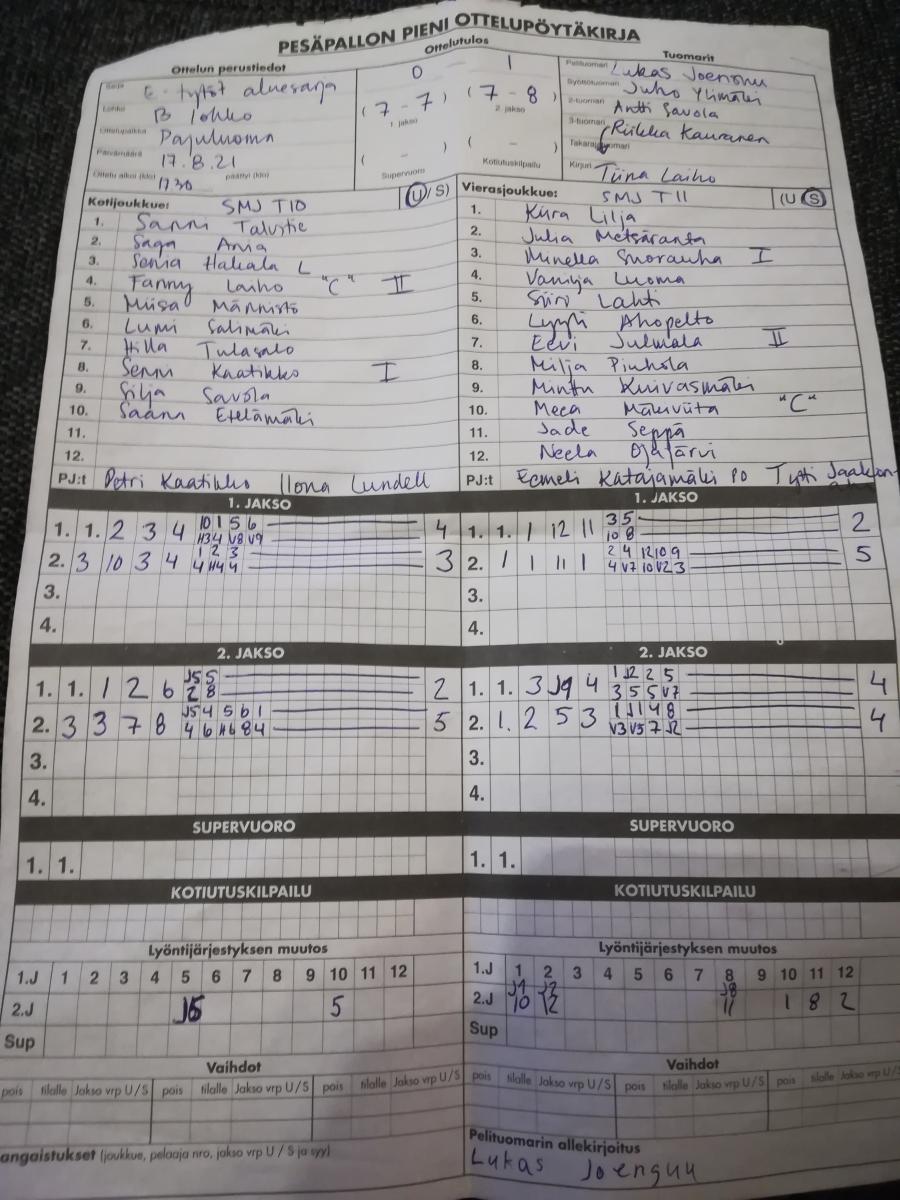 PESÄPALLON PIENI OTTELUPÖYTÄKIRJA
Ottelun perustiedot
Ottelutulos
Tuomarit
Sarja E-tytöt aluesarja
Lohko B lohko
Ottelupaikka Pajuluoma
Päivämäärä 17.8.21
Ottelu alkoi (klo) 17.30 päättyi (klo)
0 1
(7 - 7) (7 - 8)
1. jakso 2. jakso
( - ) ( - )
Supervuoro Kotiutuskilpailu
Pelituomari Lukas Joensuu
Syöttötuomari Juho Ylimäki
2-tuomari Antti Savola
3-tuomari Riikka Kauranen
Takarajatuomari
Kirjuri Tiina Laiho
Kotijoukkue: SMJ T10 (U/S)
1. Sanni Talvitie
2. Saga Ania
3. Senia Hakala L
4. Fanny Laiho "C" II
5. Miisa Männistö
6. Lumi Salimäki
7. Hilla Tulasalo
8. Senni Kaatikko I
9. Silja Savola
10. Saana Etelämäki
11.
12.
PJ:t Petri Kaatikko Ilona Lundell
Vierasjoukkue: SMJ T11 (U S)
1. Kiira Lilja
2. Julia Metsäranta
3. Minella Suorauha I
4. Vanilja Luoma
5. Siiri Lahti
6. Lyyli Ahopelto
7. Eevi Julmala II
8. Milja Piuhola
9. Minttu Kuivasmäki
10. Meea Mäkiviita "C"
11. Jade Seppä
12. Neela Ojajärvi
PJ:t Eemeli Katajamäki PO Tytti
1. JAKSO
1. 1. 2 3 4 10 1 5 6 4
H3 4 V8 V9
2. 3 10 3 4 1 2 3 3
4 H4 4
3.
4.
1. JAKSO
1. 1. 1 12 11 3 5 2
10 8
2. 1 1 11 1 2 4 12 10 9 5
4 V7 10 V2 3
3.
4.
2. JAKSO
1. 1. 1 2 6 J5 5 2
2 8
2. 3 3 7 8 J5 4 5 6 1 5
4 6 H6 8 4
3.
4.
2. JAKSO
1. 1. 3 J9 4 1 J2 2 5 4
3 5 5 V7
2. 1. 2 5 3 1 J1 4 8 4
V3 V5 7 J2
3.
4.
SUPERVUORO
1. 1.
SUPERVUORO
1. 1.
KOTIUTUSKILPAILU
KOTIUTUSKILPAILU
Lyöntijärjestyksen muutos
1.J 1 2 3 4 5 6 7 8 9 10 11 12
2.J 5
Sup
Lyöntijärjestyksen muutos
1.J 1 2 3 4 5 6 7 8 9 10 11 12
J1 J2 J8
2.J 10 12 11 1 8 2
Sup
Vaihdot
pois tilalle Jakso vrp U/S pois tilalle Jakso vrp U/S pois tilalle Jakso vrp U/S
Vaihdot
pois tilalle Jakso vrp U/S pois tilalle Jakso vrp U/S pois tilalle Jakso vrp U/S
angaistukset (joukkue, pelaaja nro, jakso vrp U / S ja syy)
Pelituomarin allekirjoitus
Lukas Joensuu